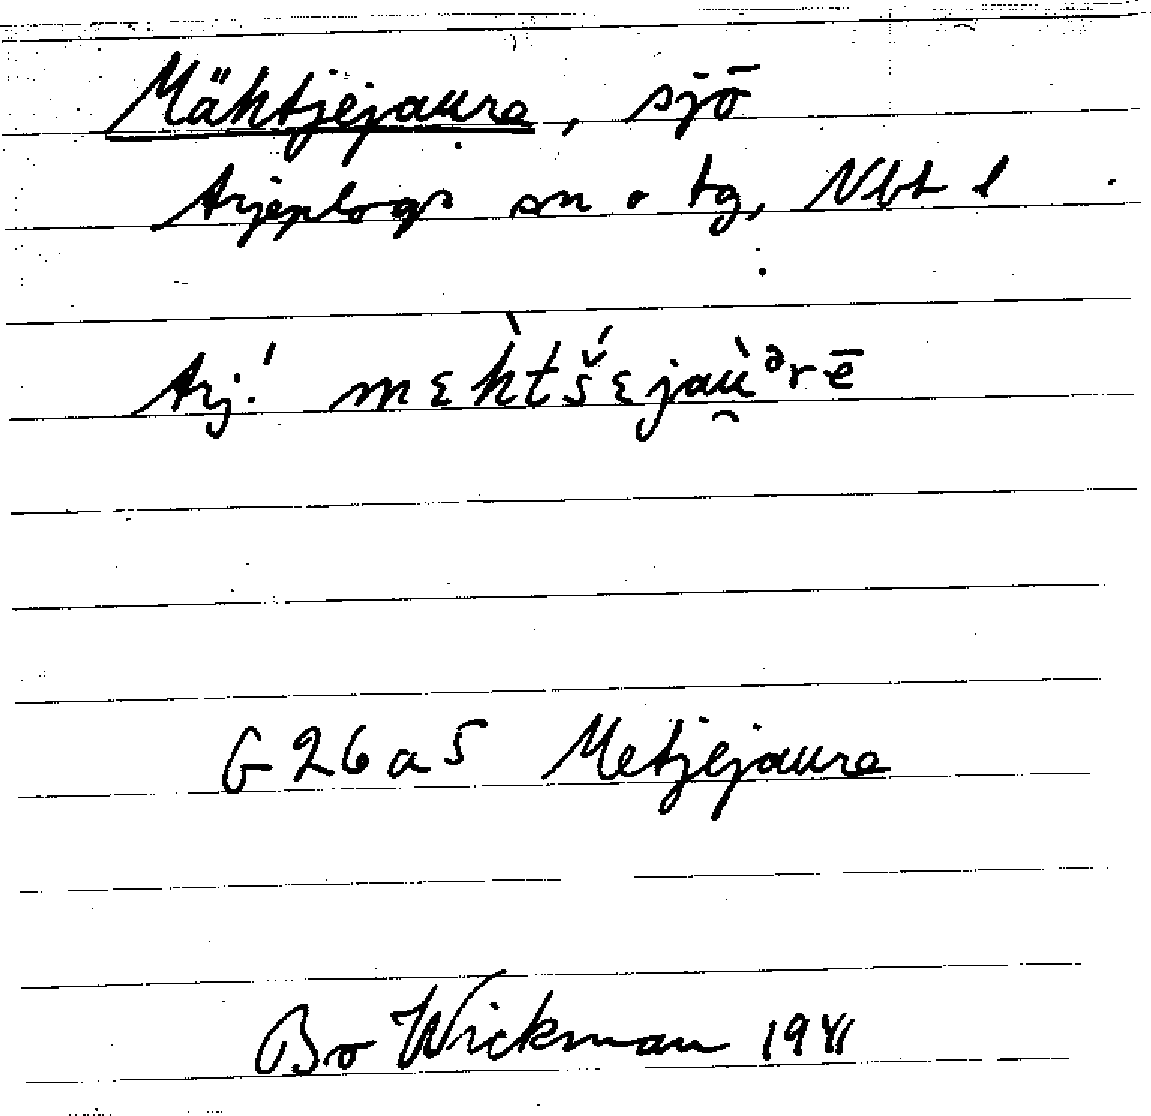 Mähtjejaure, sjö
Arjeplogs sn o tg, Nbt l
Arj.' mɛh̀tš́ɛjaù̯ᵊrē
G 26 a S Metjejaure
Bo Wickman 1941